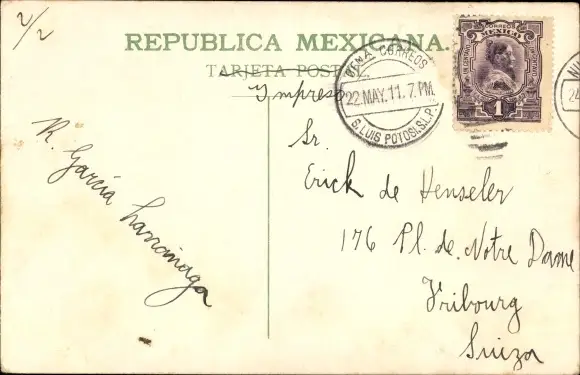 2/2
REPUBLICA MEXICANA.
TARJETA POST
Impreso
CORREOS
MEXICO
1
CORREOS
22.MAY.11.7.PM.
S. LUIS POTOSI. S.L.P.
Sr.
Erick de Henseler
176 Pl. de. Notre Dame
Fribourg
Suiza
R. García Larrañaga